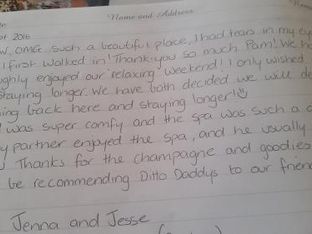 Name and Address
2016
OMG such a beautiful place, I had tears in my eyes
I first walked in! Thank you so much Pam! We h
ghly enjoyed our "relaxing" weekend! I only wished
staying longer. We have both decided we will de
ing back here and staying longer!
was super comfy and the spa was such a
y partner enjoyed the spa, and he usually
Thanks for the champagne and goodies
be recommending Ditto Daddys to our frien
Jenna and Jesse